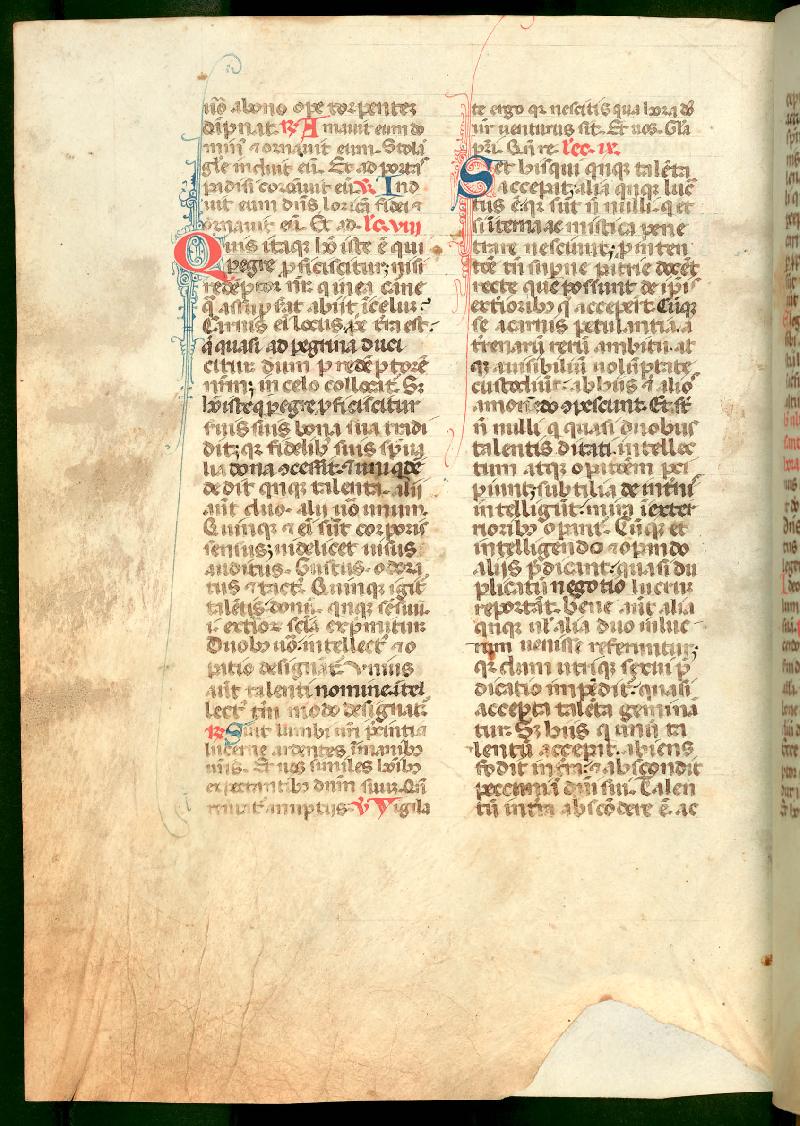 uō abono ope torpentes
dāpnat. R̃ Amauit eum do
min᷒ ⁊ ornauit eum. Stolā
gl̄e induit eū. Et ad portas
padisi coronuit eū. V̄. Ind
uit eum dn̄s loricā fidei ⁊
ornauit eū. Et ad. lc̄. viii
Quis itaq hō iste ē qui
pegre pficiscitur; nisi
redēptor nr̄ q in ea carne
q̄ assūpsat abiit ī celuꝫ.
Carnis ei locus, ꝓe tr̄a est.
q̄ quasi ad pegrina duci
citur dum p redēptorē
nr̄m; in celo collocat᷑. Sꝫ
hō iste q pegre pficiscitur
suis suis bona sua tradi
dit; qꝛ fidelibꝫ suis sp̄ua
lia dona ꝯcessit. ⁊ uni qdē
dedit qnqꝫ talenta. alii
aūt duo. alii uō unum.
Quinqꝫ ⁊ ei sūt corporis
sensus; uidelicet uisus
auditus. Gustus. odora
tus ⁊ tact᷒. Quinqꝫ igit᷑
talētis donū. qnqꝫ sēsuū.
i. exterior scīa exprimitur
Duobꝫ uō. intellect᷒ ⁊ o
patio designat᷑. Vnius
aūt talenti nomine ītel
lect᷒ tm̄ modo designat᷑.
R̃ Sint lumbi ur̄i p̄cincti ⁊
lucerne ardentes ī manibꝫ
ur̄is. Et uos similes hōibꝫ
expectantibꝫ dn̄m suuꝫ. Qn̄
reuertat᷑ a nuptiis. V̄ Vigila
te ergo qꝛ nescitis qua hora dn̄s
ur̄ uenturus sit. Et uos. Gl̄a
pr̄i. Qn̄ re. lec. ix.
Set his qui qnqꝫ talēta
accepit; alia qnqꝫ luc̄
tus ē. qꝛ sūt n̄ nulli. q et
si īterna ac mistica pene
trare nesciunt; p inten
tōe tn̄ supne patrie docēt
recte que possunt de ip̄is
exterioribꝫ q acceperūt. Cūqꝫ
se a carnis petulantia. a
trenarū rerū ambitu. at
qꝫ a uisibiliū uolūptate
custodiūt. ab hiis ⁊ alios
amonēdo ꝯpescunt. Et sūt
n̄ nulli q quasi duobus
talentis ditati. intellec
tum atqꝫ opationem pci
piunt; subtilia de int̄nis
intelligūt. mira ī exter
rioribꝫ opant᷑. Cūqꝫ et
intelligendo ⁊ opando
aliis p̄dicant. quasi du
plicatū negotio lucrum
reportāt. Bene aūt alia
qnqꝫ ul᷑ alia duo in luc
rum uenisse referuntur;
qꝛ dum utriqꝫ sexui p̄
dicatio impēdit᷑. quasi
accepta talēta gemina
tur. Sꝫ hiis q unū ta
lentū accepit. abiens
fodit in tr̄a. ⁊ abscondit
peccuniā dn̄i sui. Talen
tū in tr̄a abscōdere ē. ac